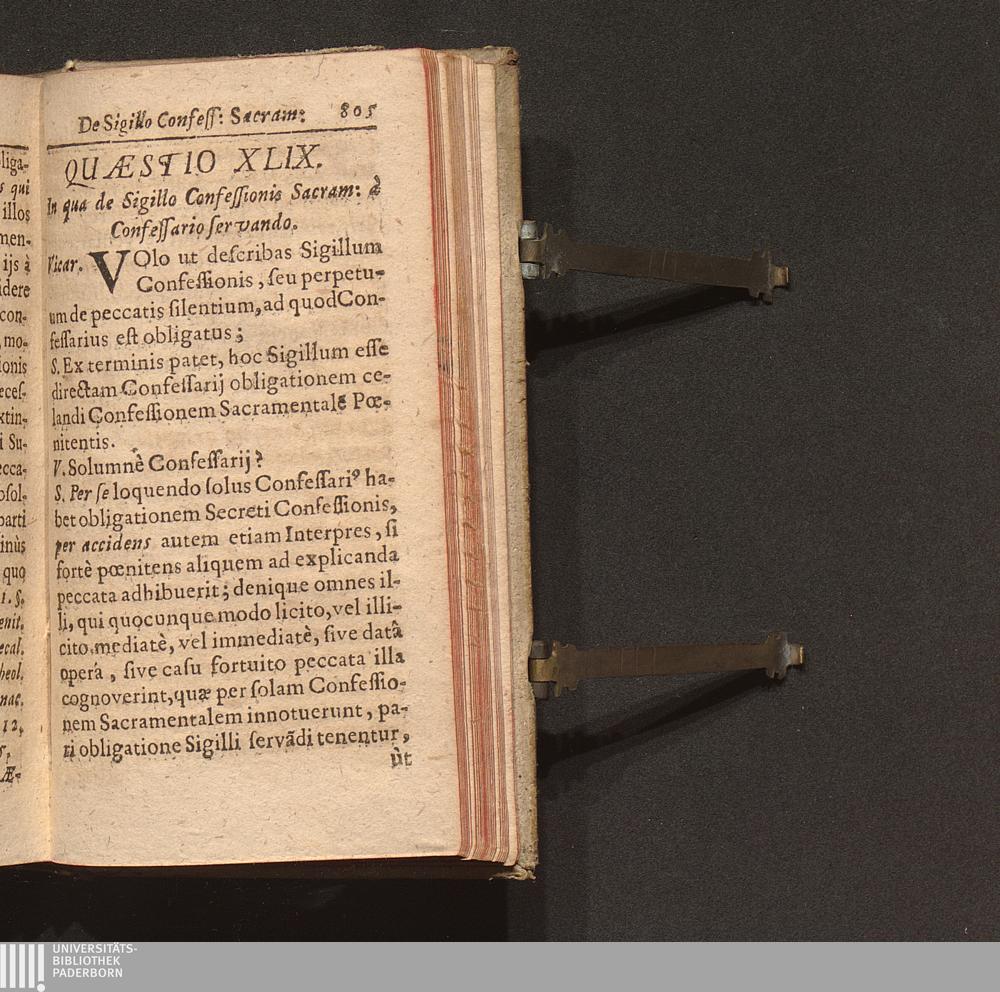 liga-
s qui
illos
men-
ijs à
idere
con-
, mo-
ionis
eces-
xtin-
i Su-
ecca-
bsol-
parti
inùs
quo
1. §.
enit.
ecal.
heol.
nac.
12,
5.
Æ-
De Sigillo Confeſſ: Sacram: 805
QUÆSTIO XLIX.
In qua de Sigillo Confeſſionis Sacram: à
Confeſſario ſervando.
Vicar. VOlo ut deſcribas Sigillum
Confeſſionis, ſeu perpetu-
um de peccatis ſilentium, ad quod Con-
feſſarius eſt obligatus;
S. Ex terminis patet, hoc Sigillum eſſe
directam Confeſſarij obligationem ce-
landi Confeſſionem Sacramentalē Pœ-
nitentis.
V. Solumnè Confeſſarij?
S. Per ſe loquendo ſolus Confeſſariꝰ ha-
bet obligationem Secreti Confeſſionis,
per accidens autem etiam Interpres, ſi
fortè pœnitens aliquem ad explicanda
peccata adhibuerit; denique omnes il-
li, qui quocunque modo licito, vel illi-
cito mediatè, vel immediatè, ſive datâ
operâ, ſive caſu fortuito peccata illa
cognoverint, quæ per ſolam Confeſſio-
nem Sacramentalem innotuerunt, pa-
ri obligatione Sigilli ſervãdi tenentur,
ùt
UNIVERSITÄTS-
BIBLIOTHEK
PADERBORN